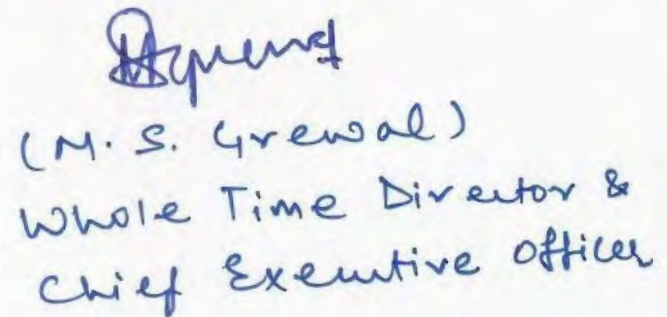 (M. S. Grewal)
Whole Time Director &
Chief Executive Officer